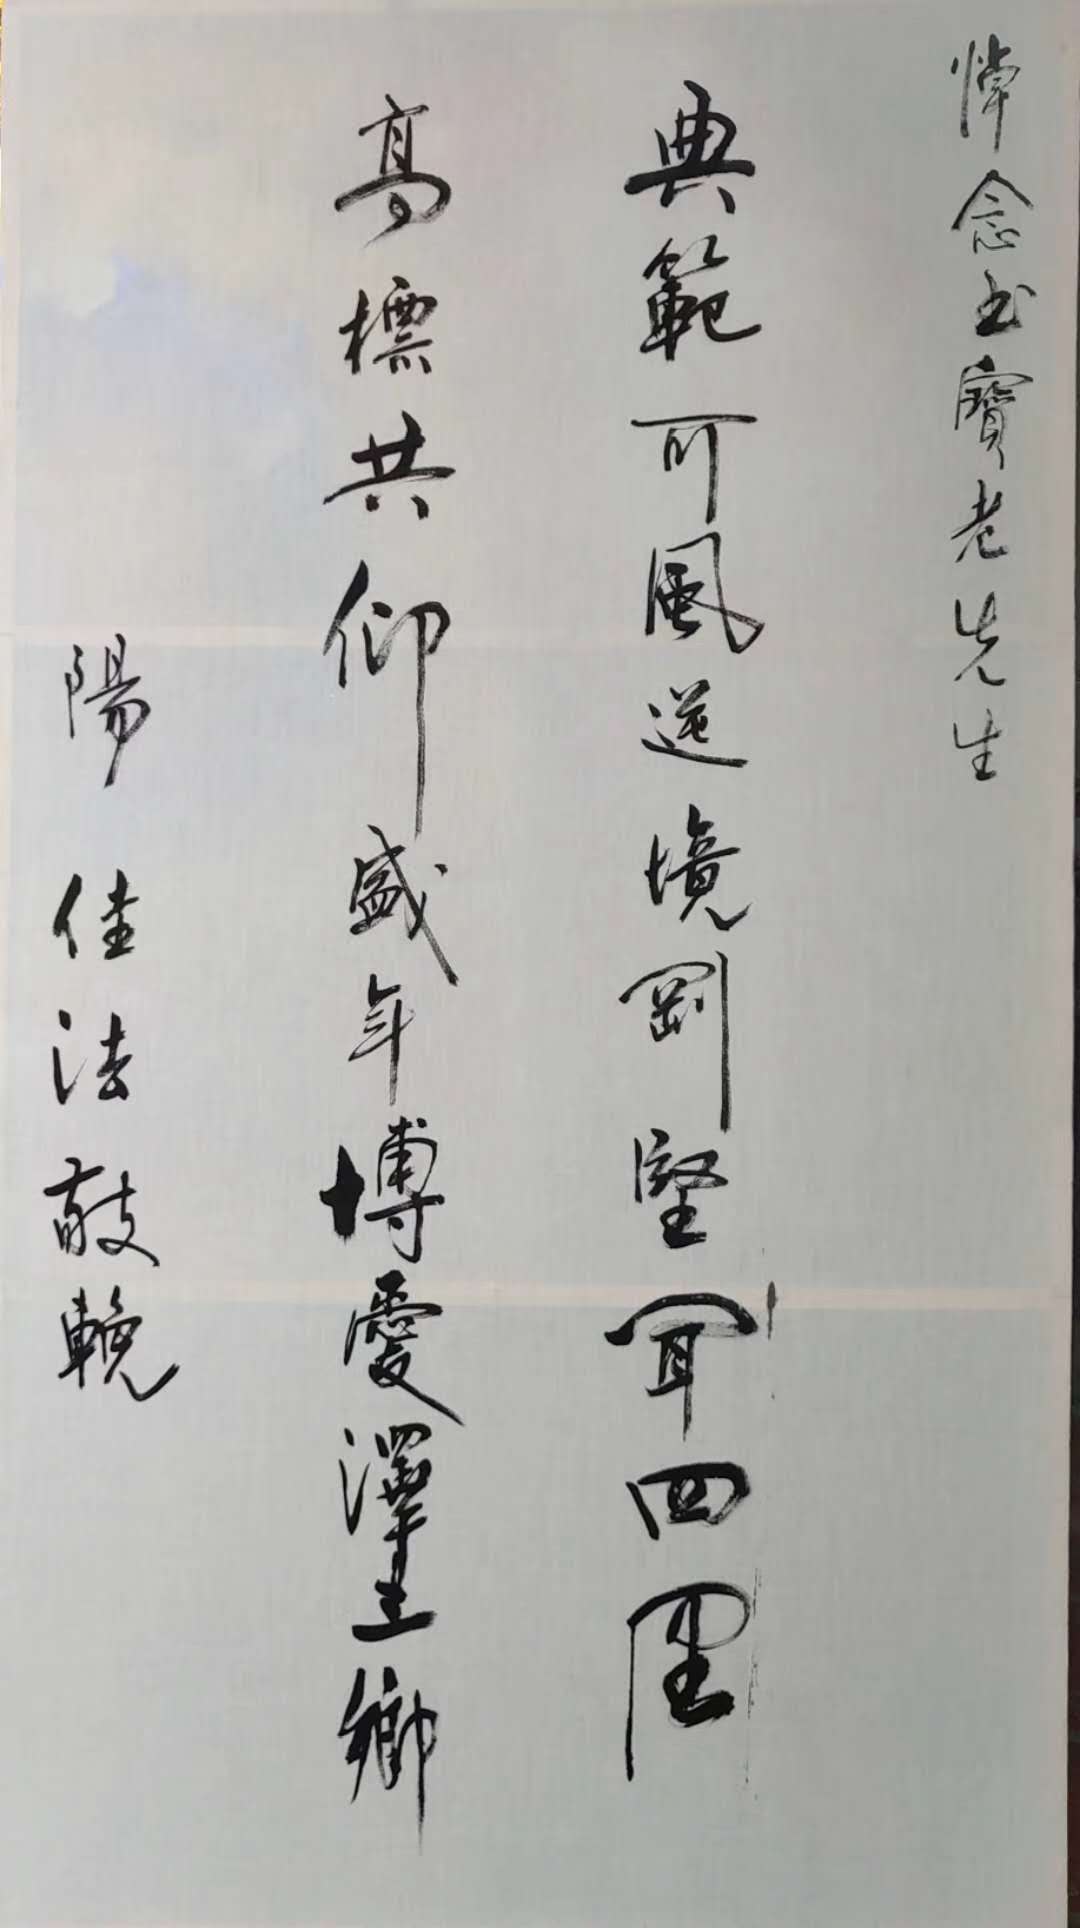 悼念玉寶老先生
典範可風逆境剛堅聞四
高標共仰盛年博愛澤三鄉
陽 佳法敬輓